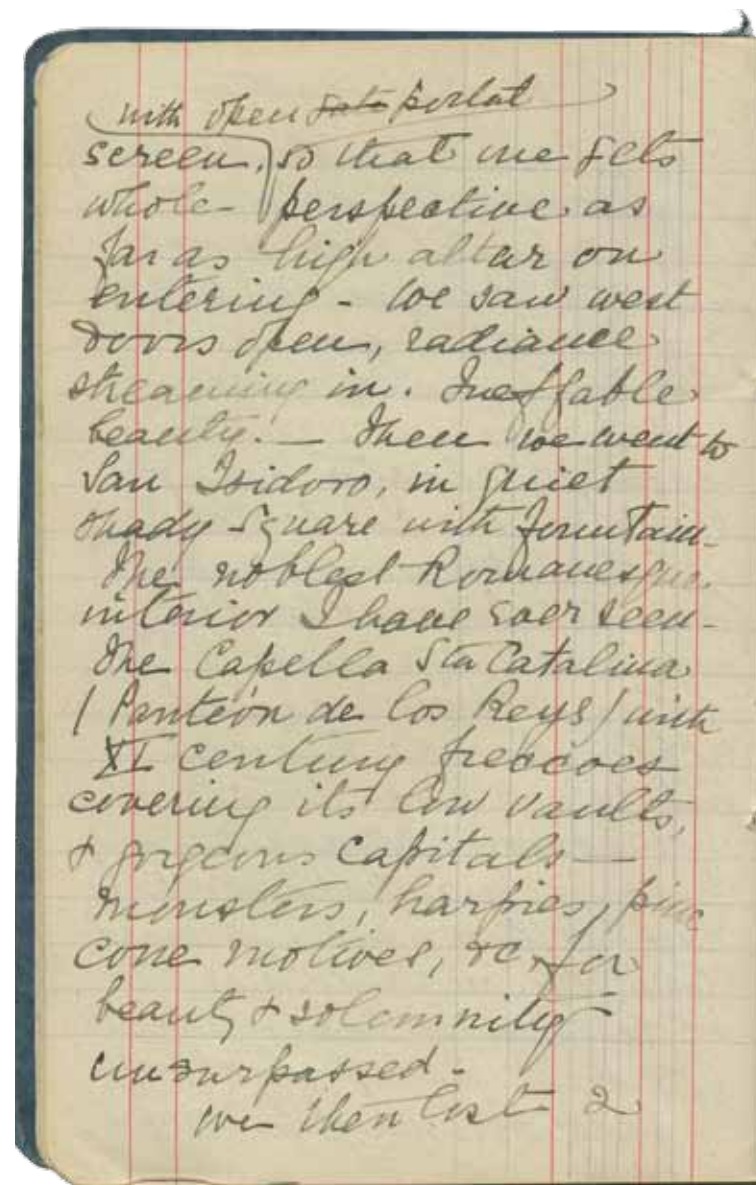 with open ~~gate~~ portal
screen, so that one gets
whole perspective as
far as high altar on
entering - We saw west
doors open, radiance
streaming in. Ineffable
beauty. — Then we went to
San Isidoro, in quiet
shady square with fountain -
The noblest Romanesque
interior I have ever seen -
The Capella Sta Catalina
(Panteón de los Reys) with
XI century frescoes
covering its low vaults,
& gorgeous capitals —
monsters, harpies, pine
cone motives, &c, for
beauty & solemnity
unsurpassed -
We then lost 2